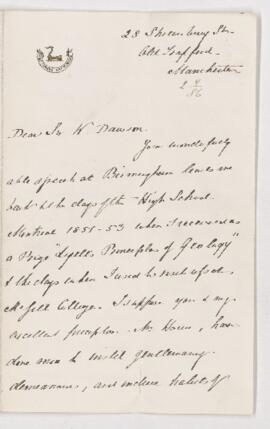 23 Shrewsbury St.
Old Trafford.
Manchester
2 9/86
Dear Sir W. Dawson.
Your wonderfully
able speech at Birmingham sends me
back to the days of the High School.
Montreal 1851-53 when I received as
a Prize "Lyell's Principles of Geology"
& the days when I used to visit
McGill College. I suppose you & my
excellent preceptor Mr. Howe, have
done more to instil gentlemanly
demeanour, and induce habits of